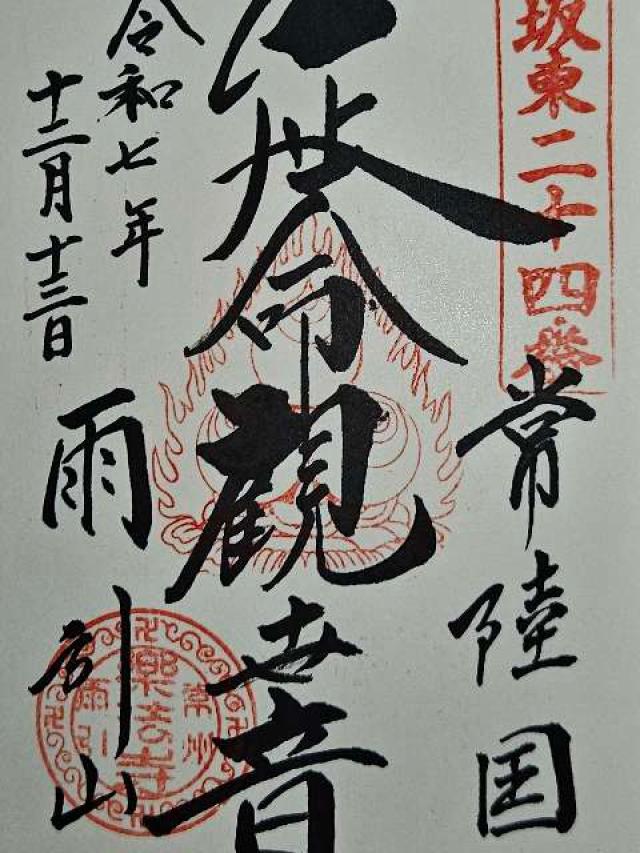 坂東二十四番
常陸国
延命觀世音
令和七年
十二月十三日
雨引山
常州
樂法寺
雨引